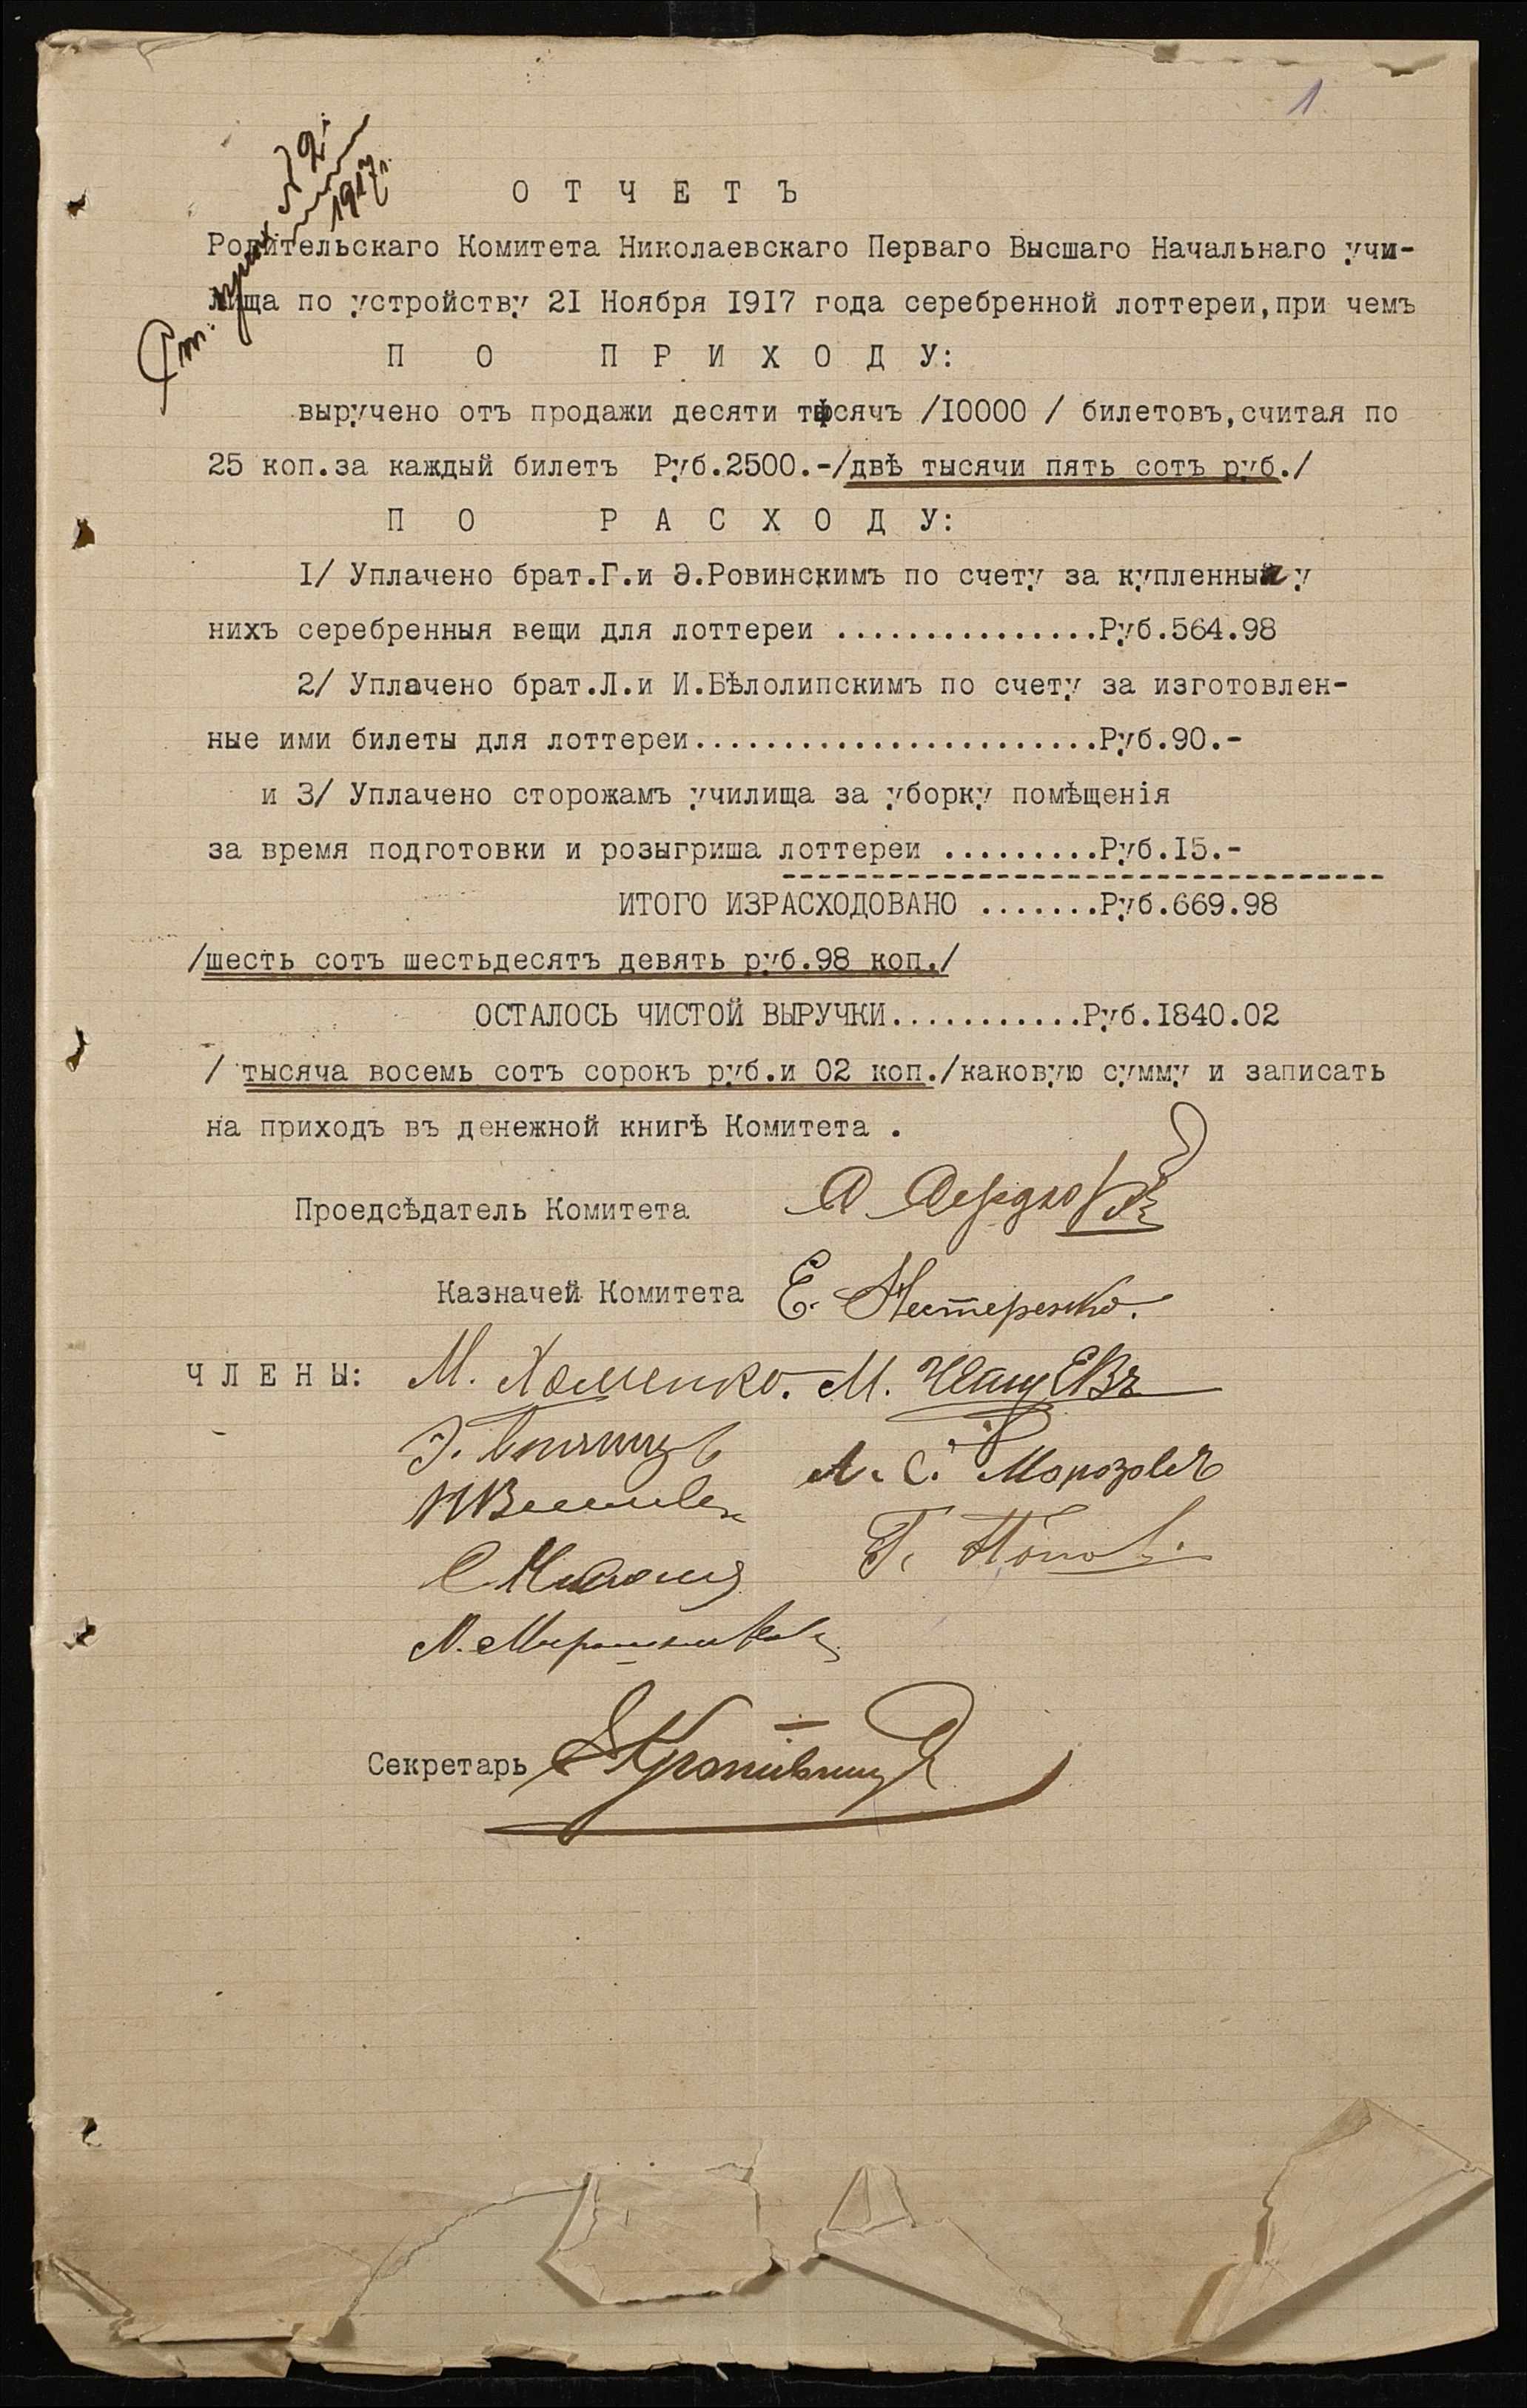 1
Ст. прих № 2.
1917 г.
О Т Ч Е Т Ъ
Родительскаго Комитета Николаевскаго Перваго Высшаго Начальнаго учи-
лища по устройству 21 Ноября 1917 года серебренной лоттереи,при чемъ
П О П Р И Х О Д У:
выручено отъ продажи десяти тысячъ /10000 / билетовъ,считая по
25 коп.за каждый билетъ Руб.2500.-/двѣ тысячи пять сотъ руб./
П О Р А С Х О Д У:
1/ Уплачено брат.Г.и Э.Ровинскимъ по счету за купленныя у
нихъ серебренныя вещи для лоттереи ...............Руб.564.98
2/ Уплачено брат.Л.и И.Бѣлолипскимъ по счету за изготовлен-
ные ими билеты для лоттереи.......................Руб.90.-
и 3/ Уплачено сторожамъ училища за уборку помѣщенія
за время подготовки и розыгриша лоттереи .........Руб.15.-
ИТОГО ИЗРАСХОДОВАНО .......Руб.669.98
/шесть сотъ шестьдесятъ девять руб.98 коп./
ОСТАЛОСЬ ЧИСТОЙ ВЫРУЧКИ...........Руб.1840.02
/ тысяча восемь сотъ сорокъ руб.и 02 коп./каковую сумму и записать
на приходъ въ денежной книгѣ Комитета .
Проедсѣдатель Комитета
Казначей Комитета Е. Нестеренко.
Ч Л Е Н Ы: М. Хоменко. М.
А. С. Морозовъ
Г. Попов.
Секретарь